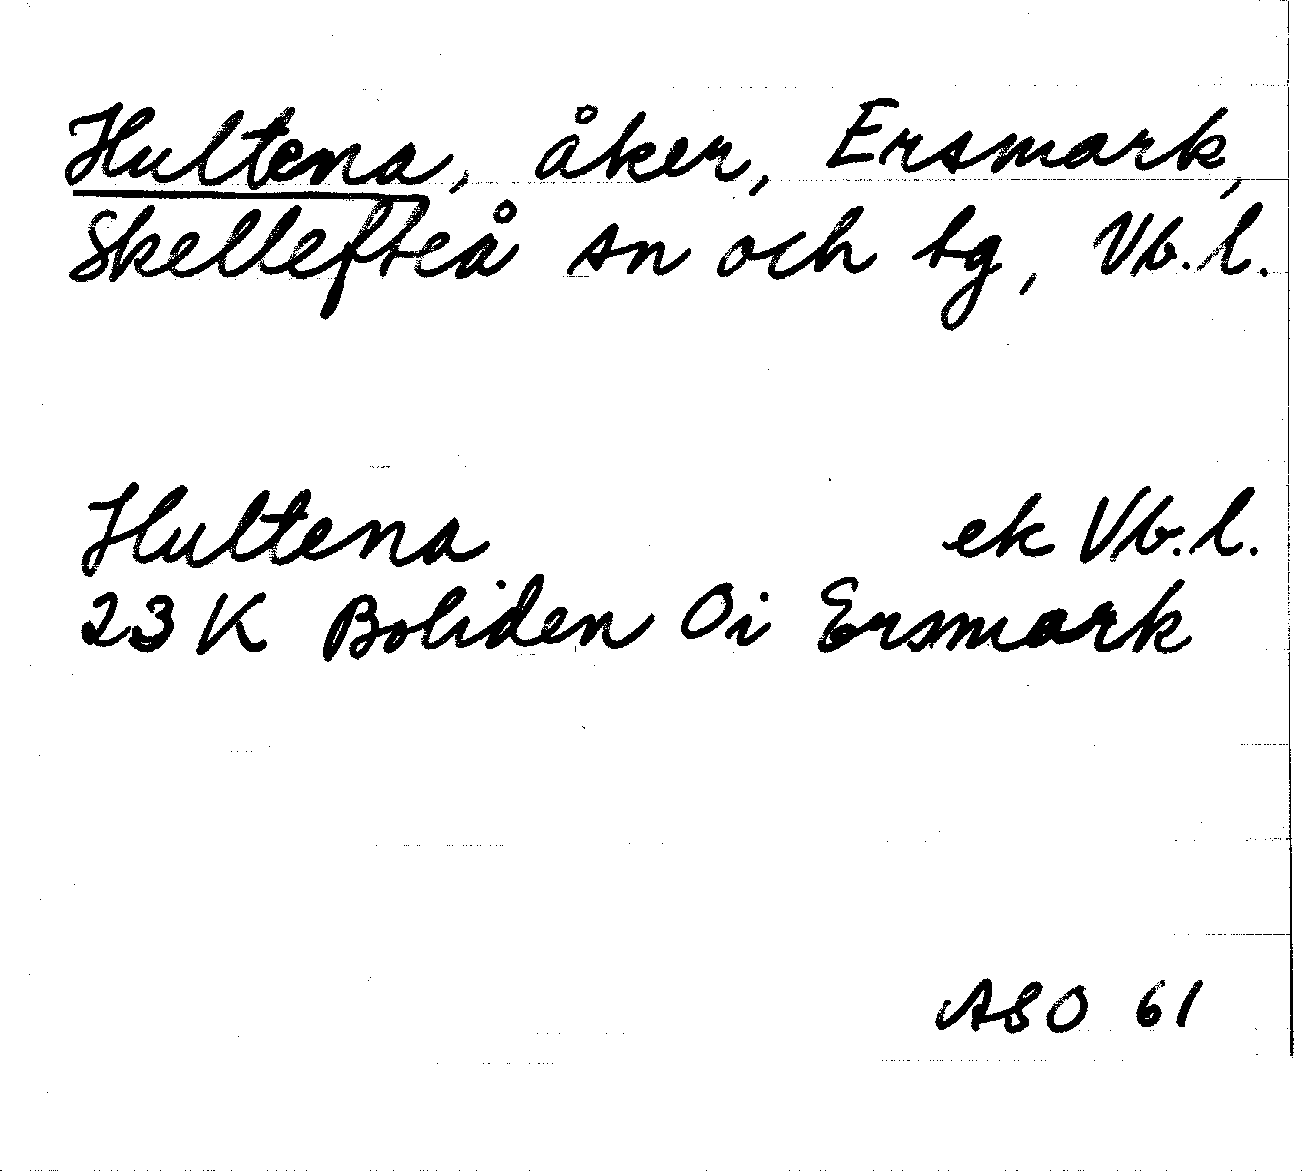 Hultena, åker, Ersmark,
Skellefteå sn och tg, Vb.l.
Hultena ek Vb.l.
23 K Boliden Oi Ersmark
ASO 61